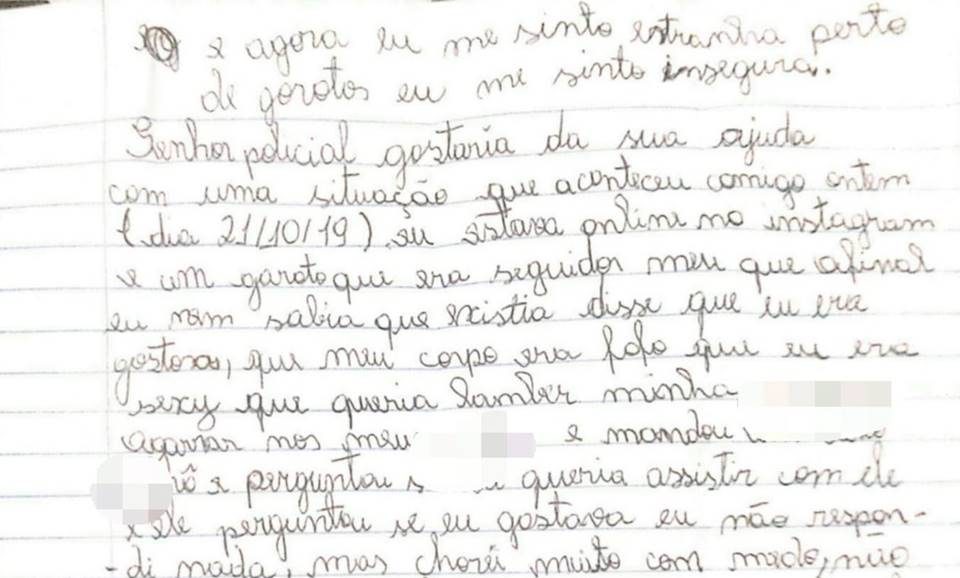 e agora eu me sinto estranha perto
de garotos eu me sinto insegura.
Senhor policial gostaria da sua ajuda
com uma situação que aconteceu comigo ontem
(dia 21/10/19) eu estava online no instagram
e um garoto que era seguidor meu que afinal
eu nem sabia que existia disse que eu era
gostosa, que meu corpo era fofo que eu era
sexy que queria lamber minha
agarrar nos meu e mandou
e perguntou s queria assistir com ele
e ele perguntou se eu gostava eu não respon-
-di nada, mas chorei muito com medo, não